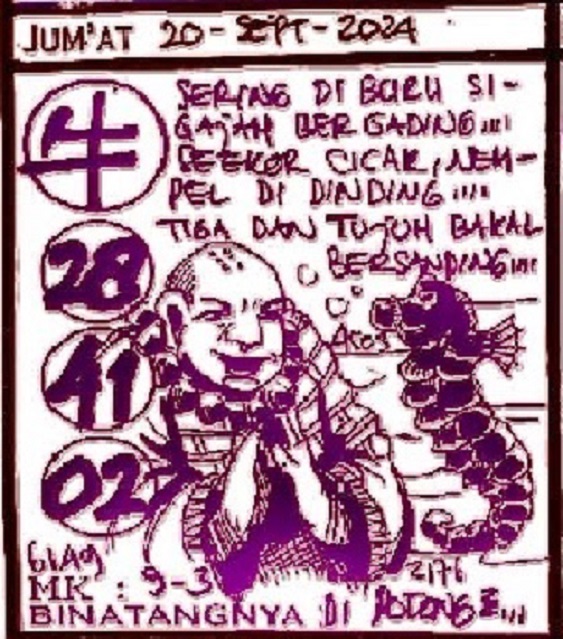 JUM'AT 20-SEPT-2024
牛
SERING DI BURU SI-
GAJAH BERGADING....
SEEKOR CICAK, NEM-
PEL DI DINDING....
TIGA DAN TUJUH BAKAL
BERSANDING....
28
41
02
MK : 9-3
2176
BINATANGNYA DI POTONG2....